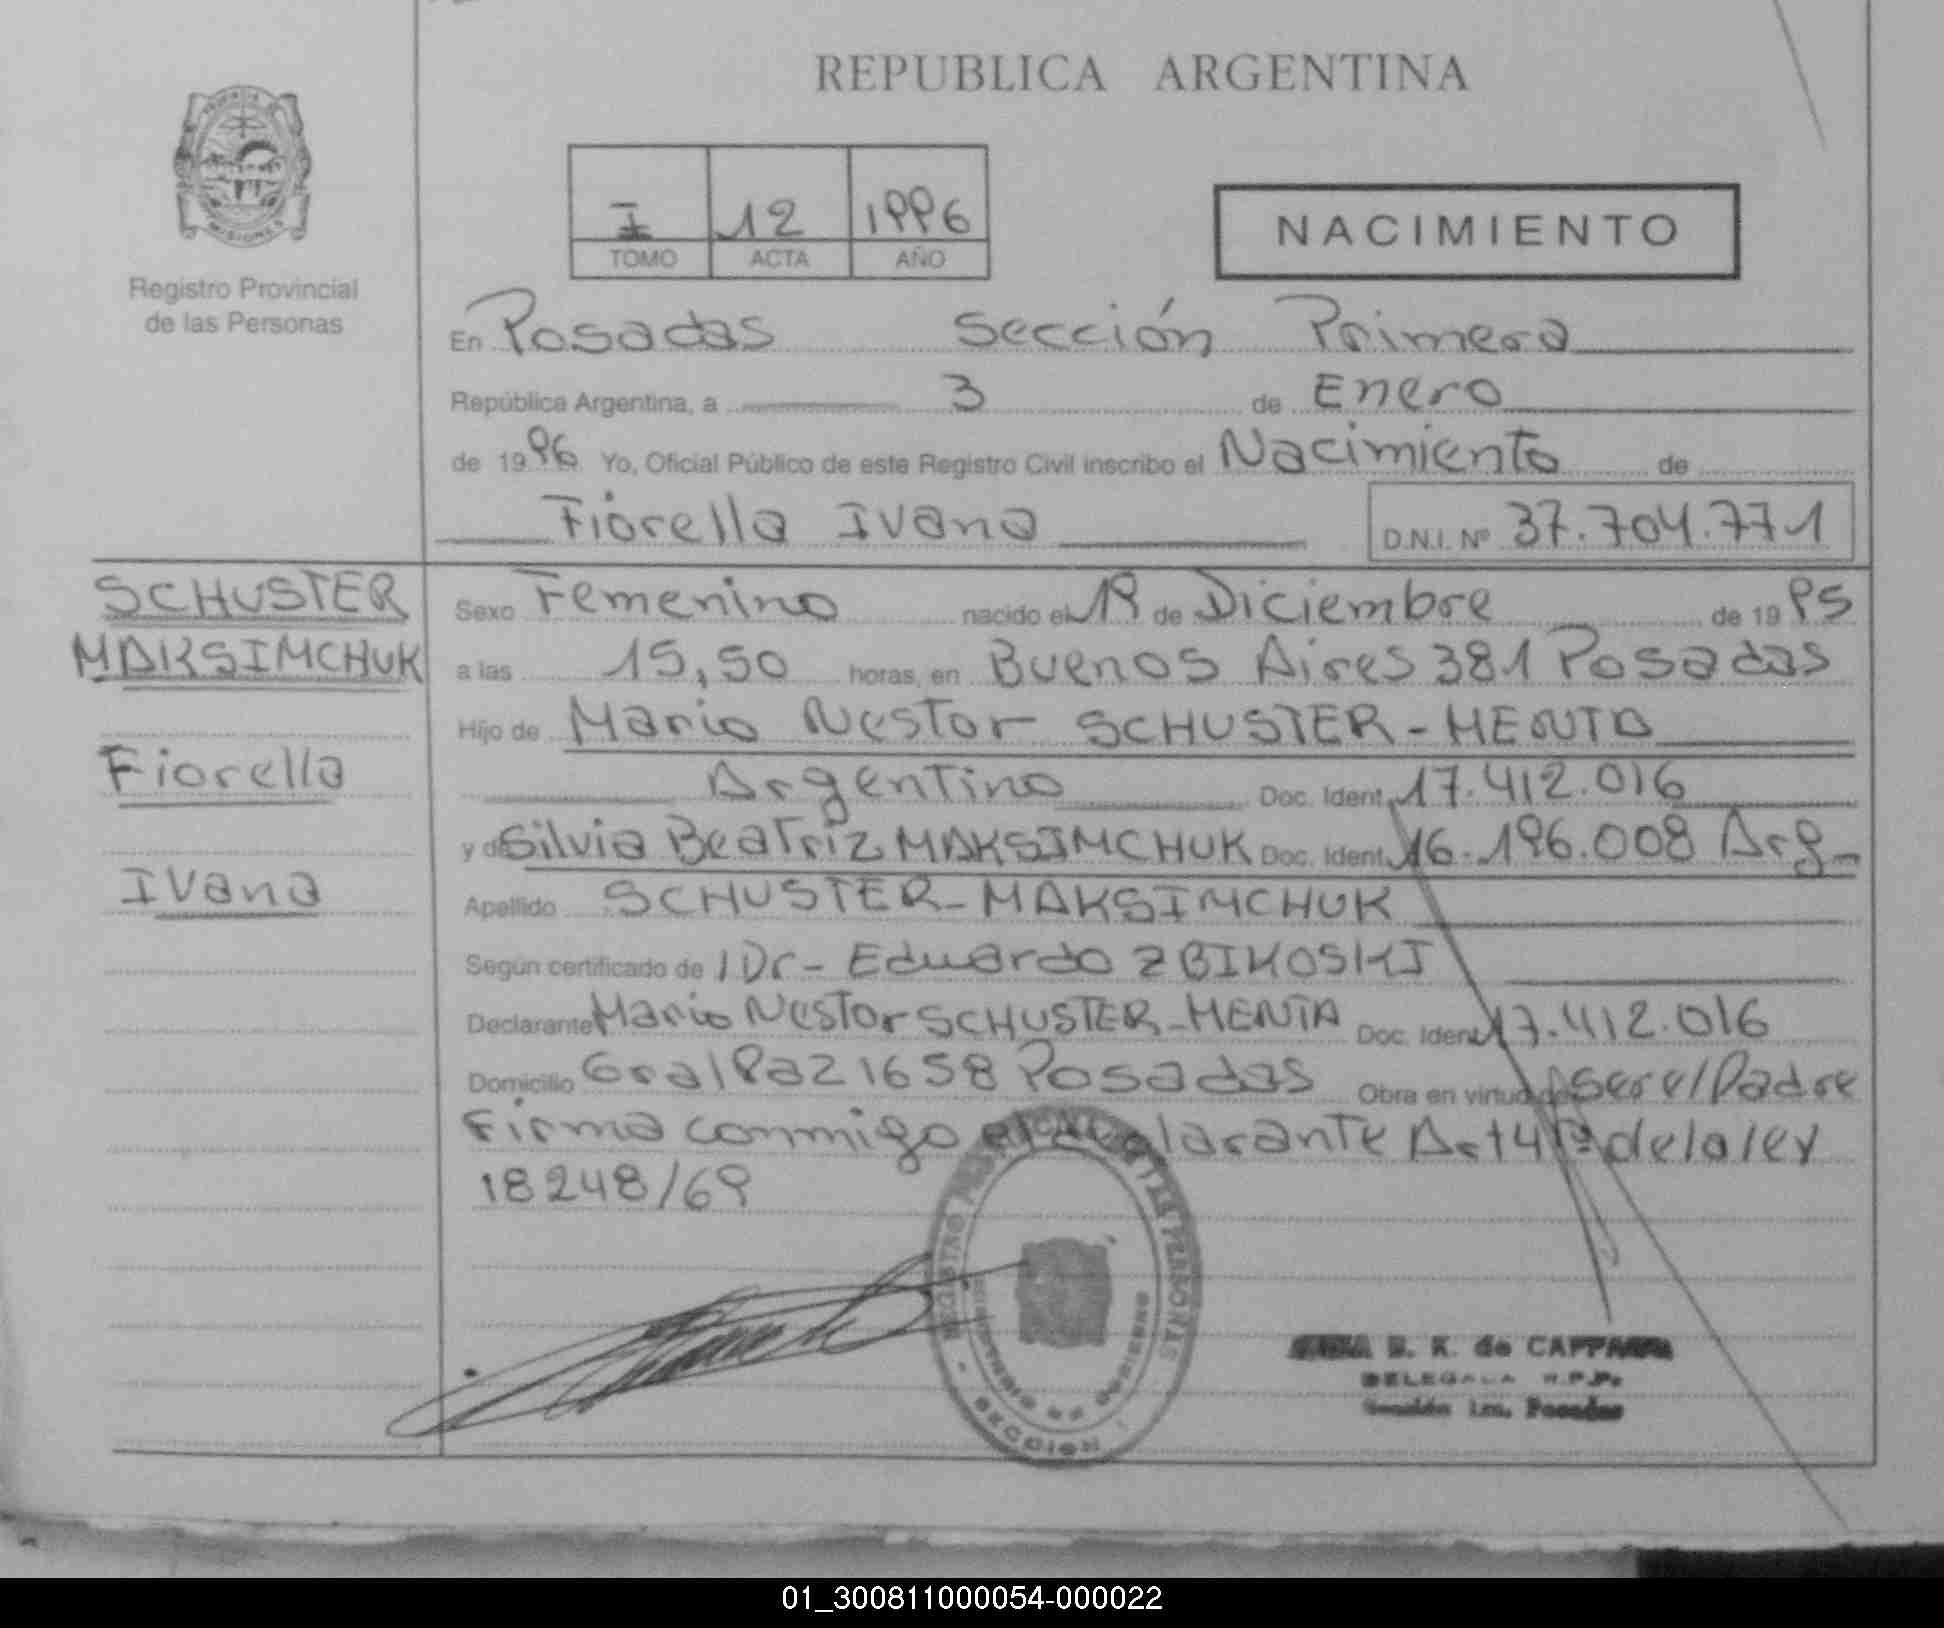 REPUBLICA ARGENTINA
PROVINCIA DE
MISIONES
Registro Provincial
de las Personas
I 12 1996
TOMO ACTA AÑO
NACIMIENTO
En Posadas Sección Primera
República Argentina, a 3 de Enero
de 1996 Yo, Oficial Público de este Registro Civil inscribo el Nacimiento de
Fiorella Ivana D.N.I. Nº 37.704.771
SCHUSTER
MAKSIMCHUK
Fiorella
Ivana
Sexo Femenino nacido el 19 de Diciembre de 1995
a las 15,50 horas, en Buenos Aires 381 Posadas
Hijo de Mario Nestor SCHUSTER-MENTA
Argentino Doc. Ident. 17.412.016
y de Silvia Beatriz MAKSIMCHUK Doc. Ident. 16.196.008 Arg_
Apellido SCHUSTER-MAKSIMCHUK
Según certificado de / Dr- Eduardo ZBIKOSKI
Declarante Mario Nestor SCHUSTER-MENTA Doc. Ident. 17.412.016
Domicilio Gral Paz 1658 Posadas Obra en virtud de Ser el Padre
Firma conmigo el declarante Art 4º de la ley
18248/69
REGISTRO PROVINCIAL DE LAS PERSONAS
SECCION
B. K. de
DELEGADA R.P.P.
Sección 1ra. Posadas
01_300811000054-000022